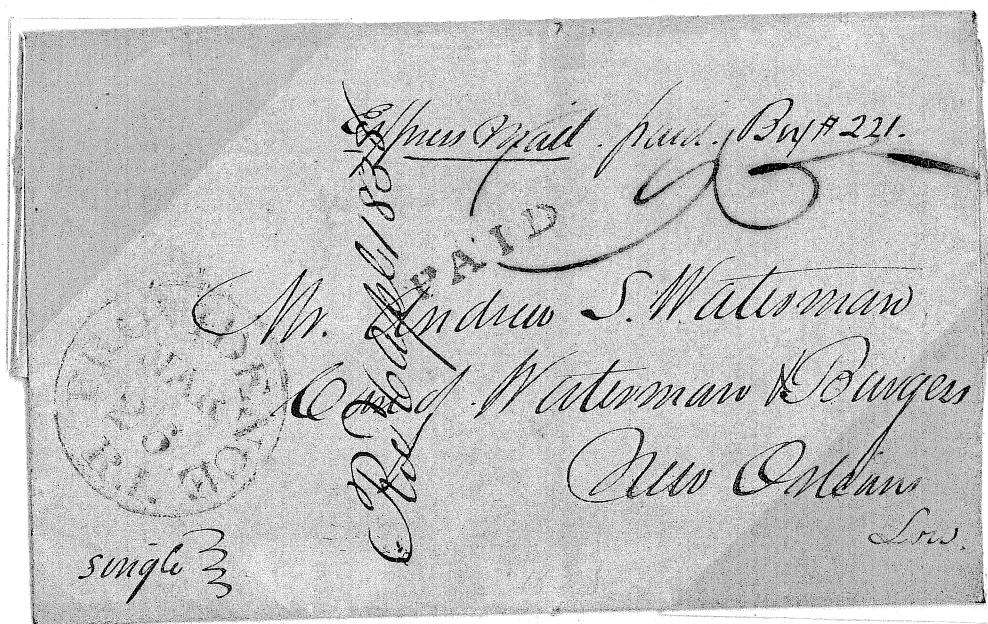 Express Mail. paid. Box # 221.
PAID
PROVIDENCE R.I.
MAR
Mr. Andrew S. Waterman
Care of Waterman & Burgess
New Orleans
Lou.
single
1838